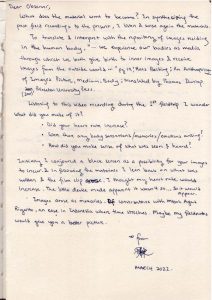 Dear Observer,
What does the material want to become? In synthesizing the
past field recordings to the present, I want to once again the materials.
To translate & interact with the repository of images residing
in the human body, " - We experience our bodies as media
through which we both give birth to inner images & receive
images from the outside world - " pg 19, Hans Belting: An Anthropology
of Images: Picture, Medium, Body; translated by Thomas Dunlap
Princeton University Press.
Listening to this video recording during the 1st I wonder
what did you make of it?
• Did your heart rate increase?
• Were there any body sensations/memories/emotions arising?
• How did you make sense of what was seen & heard?
Initially I conjured a blank screen as a possibility for your images
to occur. In the materials I lean back on what was
written & the film clip I thought my heart rate would
increase. The little device made apparent it wasn't so... So it would
appear.
Images arose as memories. conversations with
an in Indonesia when time stretches. Maybe my
would give you a better picture.
MARCH 2022.